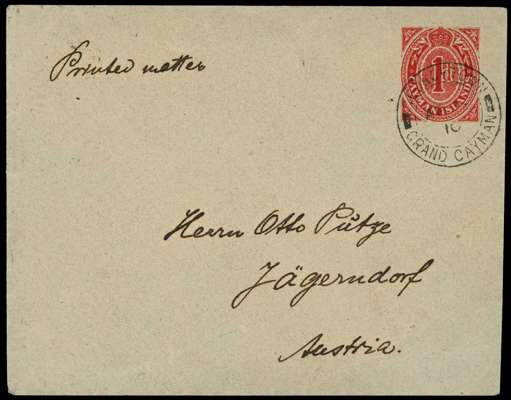 Printed matter
1d
CAYMAN ISLANDS
10
GRAND CAYMAN
Herrn Otto Pütze
Jägerndorf
Austria.